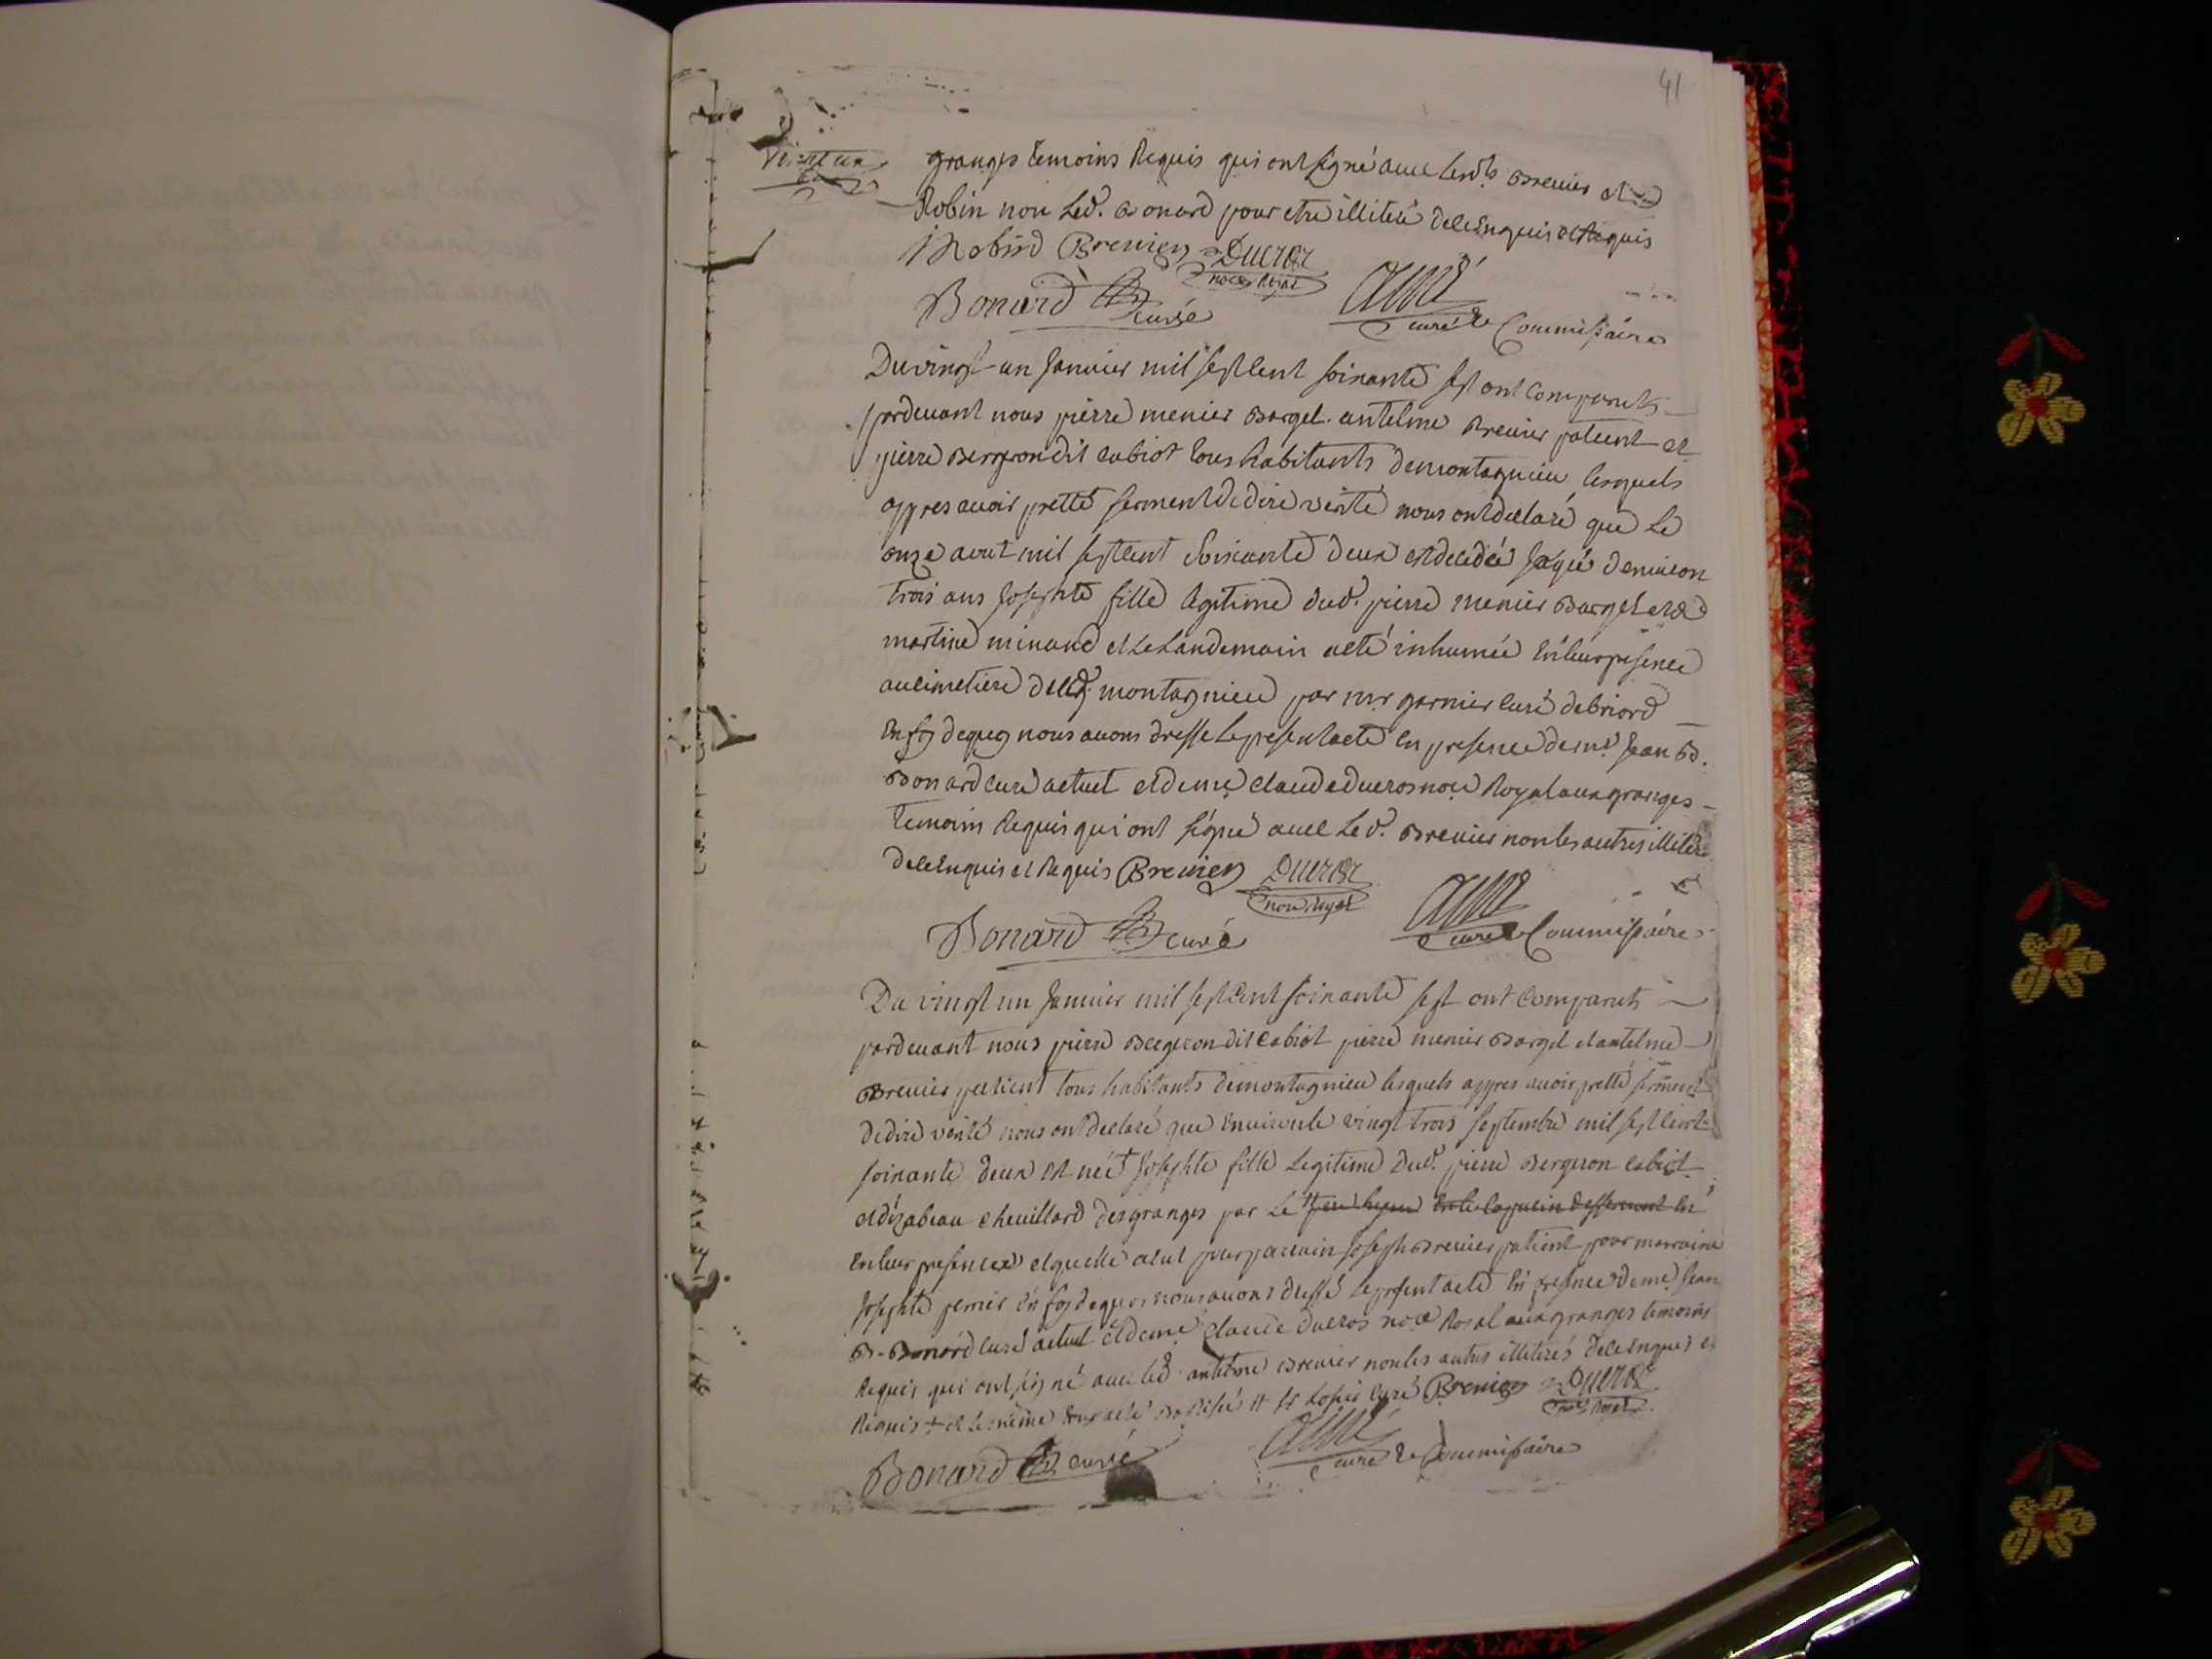 41
granges temoins Requis qui ont signé avec lesds Brenier et
Robin non Led. Bonard pour etre illiteré de ce Enquis et Requis
Robin Brenier Ducros
nore Royal
Bonard curé
curé & Commissaire
Du vingt-un Janvier mil sept cent soixante sept ont comparuts
pardevant nous pierre menier Bargel. antelme Brenier patient et
pierre Bergeron dit cabiot tous habitants de montagnieu lesquels
appres avoir pretté serment de dire verité nous ont declaré que Le
onze aout mil sept cent soixante deux est decedée agée d'environ
trois ans Josephte fille legitime dud. pierre menier Bargel et de
martine minand et Le Landemain a eté inhumée en leur presence
au cimetiere dud. montagnieu par mr garnier curé de briord
En foy de quoy nous avons dressé le present acte en presence de mre Jean B.
Bonard curé actuel et de me claude ducros nore Royal aux granges
temoins Requis qui ont signé avec Led. Brenier non les autres illiteré
de ce Enquis et Requis Brenier Ducros
nore Royal
Bonard curé
curé & Commissaire
Du vingt un Janvier mil sept cent soixante sept ont comparuts
pardevant nous pierre Bergeron dit cabiot pierre menier Bargel et antelme
Brenier patient tous habitants de montagnieu lesquels appres avoir pretté serment
de dire verité nous ont declaré que environ le vingt trois septembre mil sept cent
soixante deux est née Josephte fille Legitime dud. pierre Bergeron cabiot
et d'izabeau chevillard des granges par Le
en leur presence et quelle a eut pour parrain Joseph Brenier patient pour marraine
Josephte perrier En foy de quoi nous avons dressé le present acte En presence de me Jean
B. Bonard curé actuel et de me claude ducros nore Roial aux granges temoins
Requis qui ont signé avec led. antelme Brenier non les autres illiterés de ce enquis et
Requis + et Le meme jour a eté Baptisé curé Brenier Ducros
nore Royal
Bonard curé
curé & Commissaire